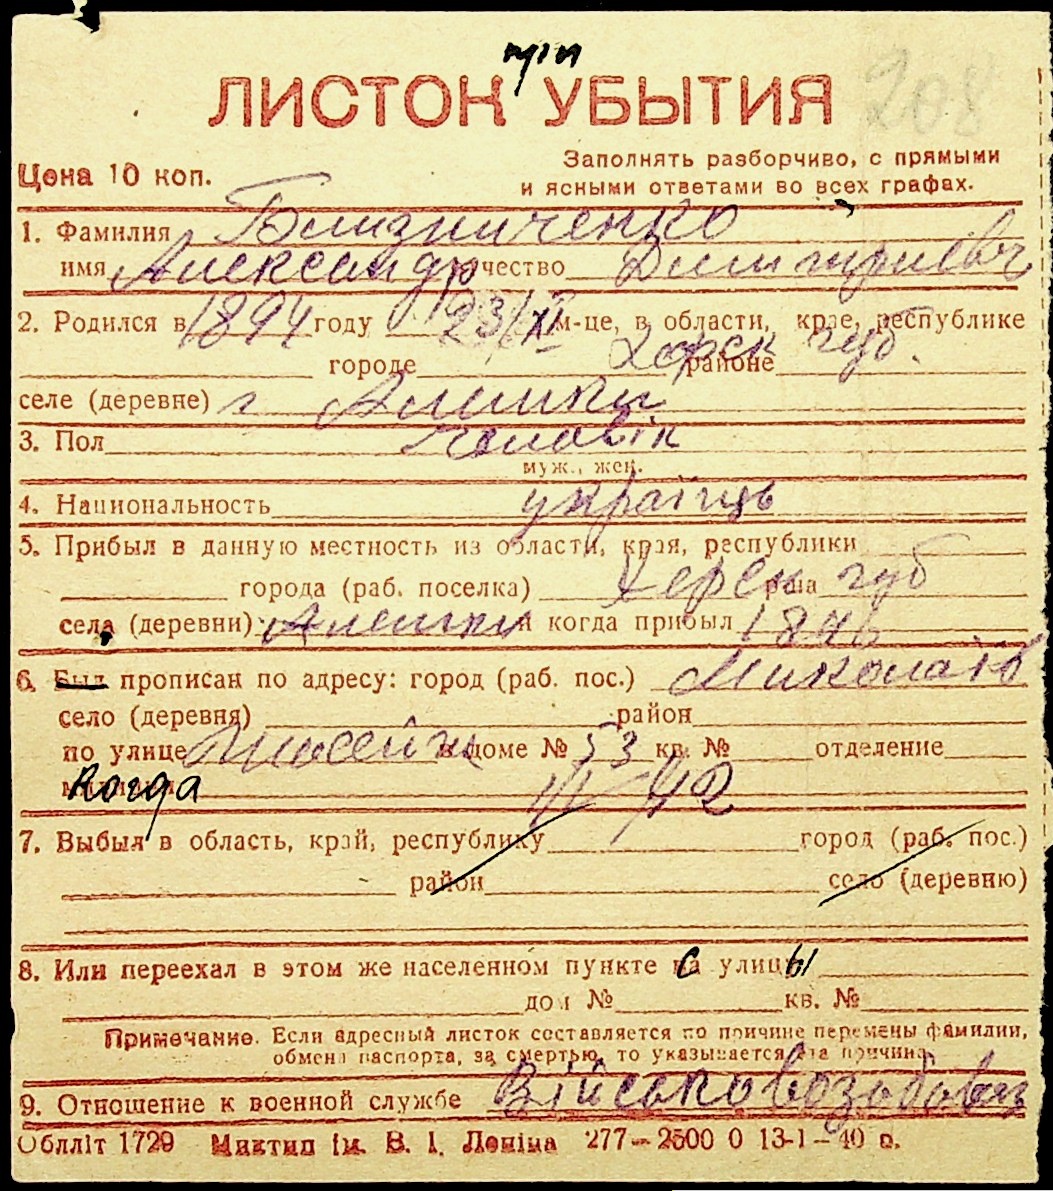 при
ЛИСТОК УБЫТИЯ
208
Цена 10 коп.
Заполнять разборчиво, с прямыми
и ясными ответами во всех графах.
1. Фамилия Близниченко
имя Александр отчество Дмитриевич
2. Родился в 1894 году 23/XI м-це, в области, крае, республике
городе Херск губ. районе
селе (деревне) г Алешки
3. Пол чоловік
муж., жен.
4. Национальность українць
5. Прибыл в данную местность из области, края, республики
города (раб. поселка) Херск губ
села (деревни) Алешки и когда прибыл 1896
6. Был прописан по адресу: город (раб. пос.) Миколаїв
село (деревня) район
по улице в доме № 53 кв. № отделение
милиции когда
7. Выбыл в область, край, республику город (раб. пос.)
район село (деревню)
8. Или переехал в этом же населенном пункте с улицы
дом № кв. №
Примечание. Если адресный листок составляется по причине перемены фамилии,
обмена паспорта, за смертью, то указывается эта причина.
9. Отношение к военной службе Військовозобовяз
Облліт 1729 Миктип ім. В. І. Леніна 277—2500 0 13-1—40 р.